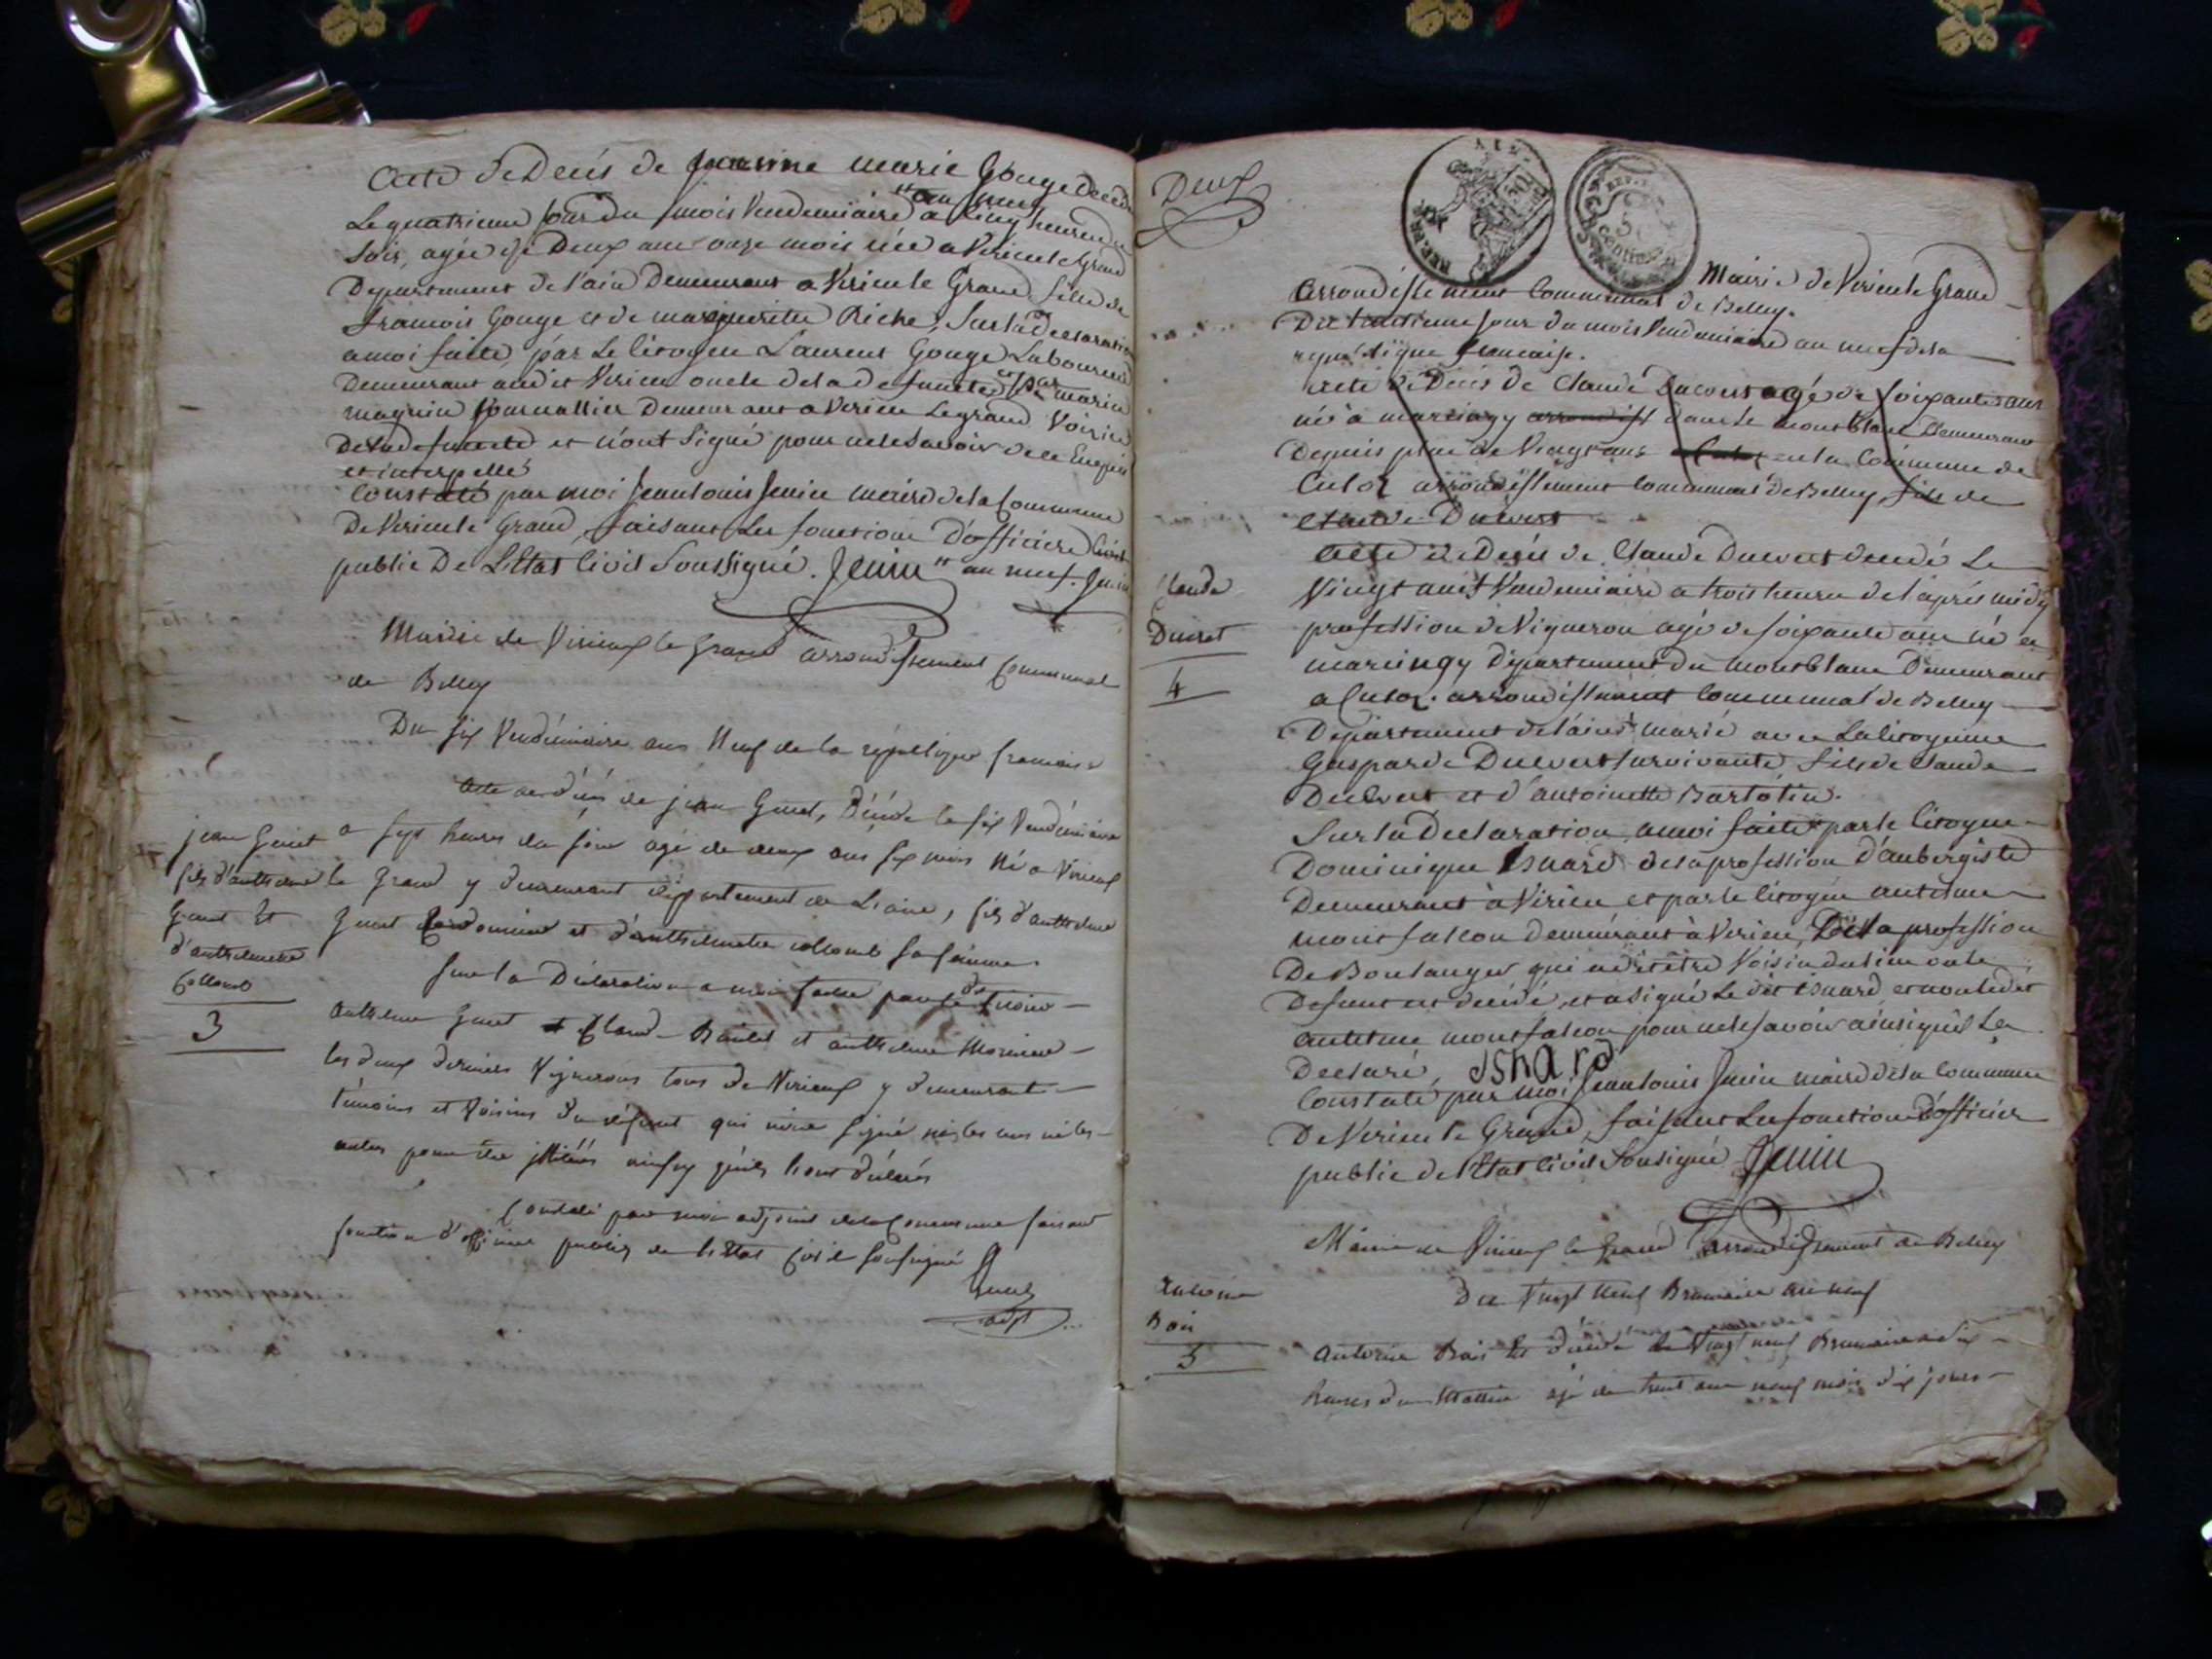 Acte de Decés de jeanne marie Gouge decedée
Le quatrieme jour du mois Vendemiaire an neuf a Cinq heures du
Soir, agée de Deux ans onze mois née a Virieu le Grand
Departement de l'ain Demeurant a Virieu le Grand fille de
francois Gouge et de marguerite Riche, Sur la declaration
a moi faite, par Le Citoyen Laurent Gouge Laboureur
Demeurant audit Virieu oncle de la defuncte et par marin
magnin journallier Demeurant a Virieu Le grand Voisin
De la defuncte et n'ont Signé pour ne le Savoir de ce Enquis
et interpellé
Constaté par moi Jean louis Jenin maire de la Commune
De Virieu le Grand, faisant Les fonction D'officier
public De L'Etat Civil Soussigné. Jenin an neuf.
Mairie de Virieux le grand arrondissement Communal
de Belley
Du six Vendémiaire ans Neuf de la republique francaise
Acte de décés de jean Guiet, Décédé le six Vendémiaire
a sept heures du soir agé de deux ans six mois Né a Virieux
le Grand y demeurant département de L'ain, fils d'anthelme
Guiet et d'anthelmette collomb sa femme
jean Guiet
fils d'anthelme
Guiet Et
d'anthelmette
Collomb
3
Sur la Déclaration a moi faite par
anthelme Guiet et Claude et anthelme
les deux derniers Vignerons tous de Virieux y demeurant
témoins et Voisins du défunt qui n'ont signé ni les uns ni les
autres pour être ainsy qu'ils l'ont déclarés
Constaté par moi adjoint de la Commune faisant
fonction d'officier public de l'Etat Civil soussigné
adjt
Deux
50
REP. FRA
AIN
5
centimes
Mairie de Virieu le Grand
arrondissement Communal de Belley.
jour du mois Vendemiaire an neuf de la
republique francaise.
acte de Decés de Claude Ducvert agé de soixante ans
né à marcingy arrondist dans le montblanc Demeurant
Depuis plus de Vingt ans a Culoz en la Commune de
Culoz arrondissement Communal de Belley, fils de
Claude Ducvert
Acte de Decés de Claude Ducvert decedé Le
Vingt neuf Vendemiaire a trois heures de l'aprés midy
profession de Vigneron agé de soixante ans né a
marcingy Département du montblanc Demeurant
a Culoz. arrondissement Communal de Belley
Departement de l'ain marié avec La Citoyenne
Gasparde Ducvert survivante, fils de Claude
Ducvert et d'antoinette Bartolin.
Claude
Ducret
4
Sur la Declaration a moi faite par le Citoyen
Dominique Isnard de la profession d'aubergiste
Demeurant à Virieu et par le Citoyen antelme
montfalcon Demeurant à Virieu, De la profession
De Boulanger qui a dit être Voisin du lieu ou le
Defunt est decédé, et a signé Le dit Isnard et non ledit
antelme montfalcon pour ne le savoir ainsi qu'il La
Declaré, isnard
Constaté par moi Jean louis Jenin maire de la Commune
De Virieu le Grand, faisant Les fonction D'officier
public de l'Etat Civil Soussigné Jenin
Mairie de Virieux le Grand arrondissement de Belley
Du Vingt Neuf Brumaire an neuf
Antoine
Bois
5
Antoine Bois décédé le Vingt neuf Brumaire a dix
heures du Mattin agé de trent ans neuf mois dix jours